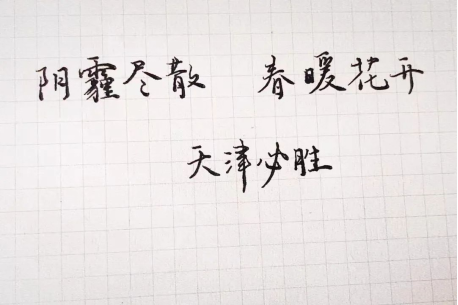 阴霾尽散 春暖花开
天津必胜